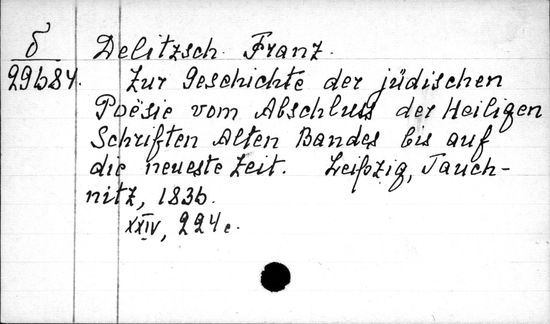 δ Delitzsch Franz.
29684. Zur Geschichte der jüdischen
Poësie vom Abschluss der Heiligen
Schriften Alten Bandes bis auf
die neueste Zeit. Leipzig, Tauch-
nitz, 1836.
XXIV, 224 c.